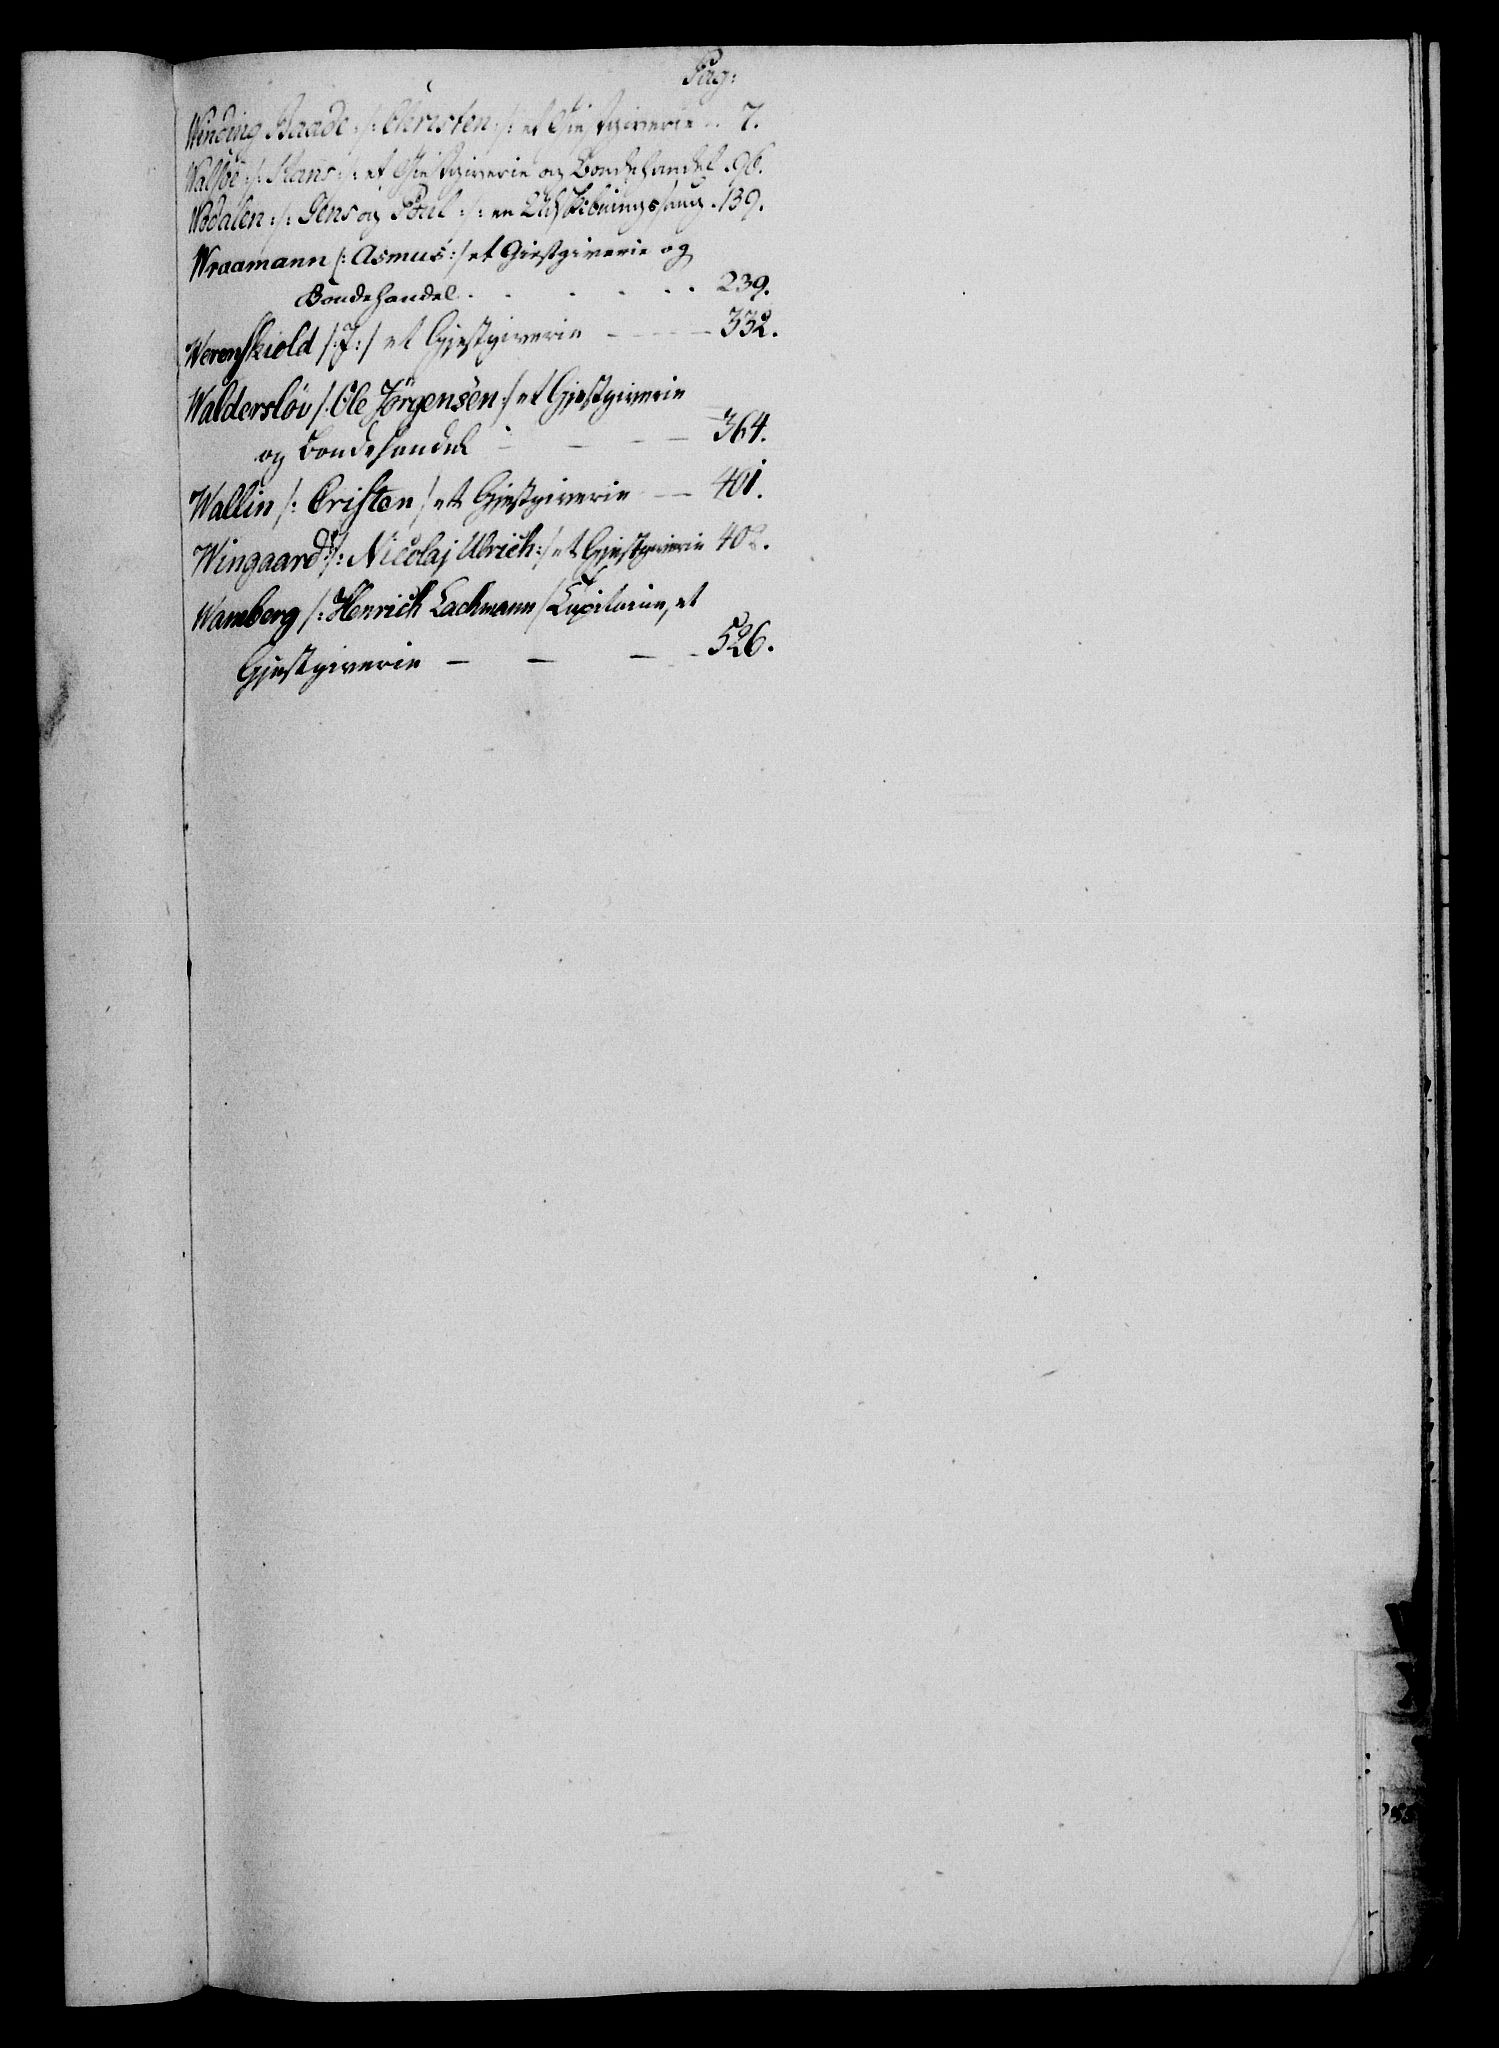 Pag:
Winding Baade /: Christen :/ et Giestgiverie .. 7.
Walsøe /: Hans :/ et Giestgiverie og Bondehandel . 96.
Wodalen :/: Jens og Poul :/: en Udskibnings saug . 139.
Wraamann /: Asmus :/ et Giestgiverie og
Bondehandel . . . . . . 239.
Werenskiold /: J :/ et Gjestgiverie - - - - 332.
Walderslöv /: Ole Jörgensen :/ et Gjestgiverie
og Bondehandel - - - - 364.
Wallin /: Cristen / et Gjestgiverie - - 401.
Wingaard /: Nicolaj Ulrich :/ et Gjestgiverie 402.
Wamberg /: Henrich Lachmann / Capitaine, et
Gjestgiverie - - - - 526.